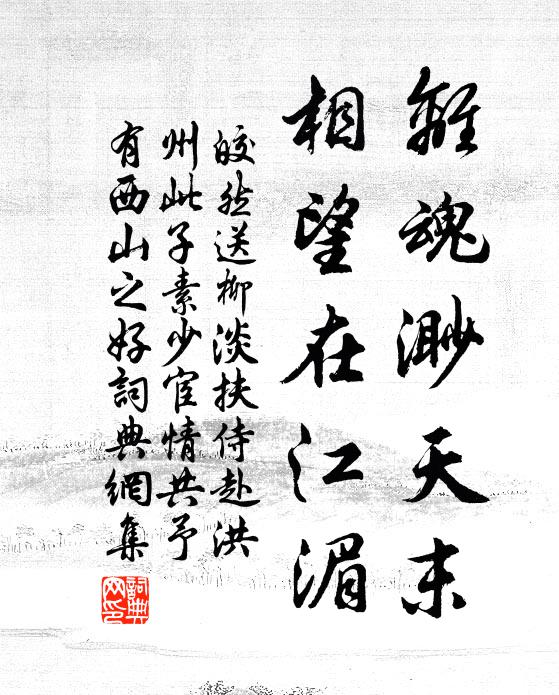 離魂渺天末
相望在江湄
皎然送柳淡扶侍赴洪
州此子素少宦情共予
有西山之好詞典網集
詞典網印